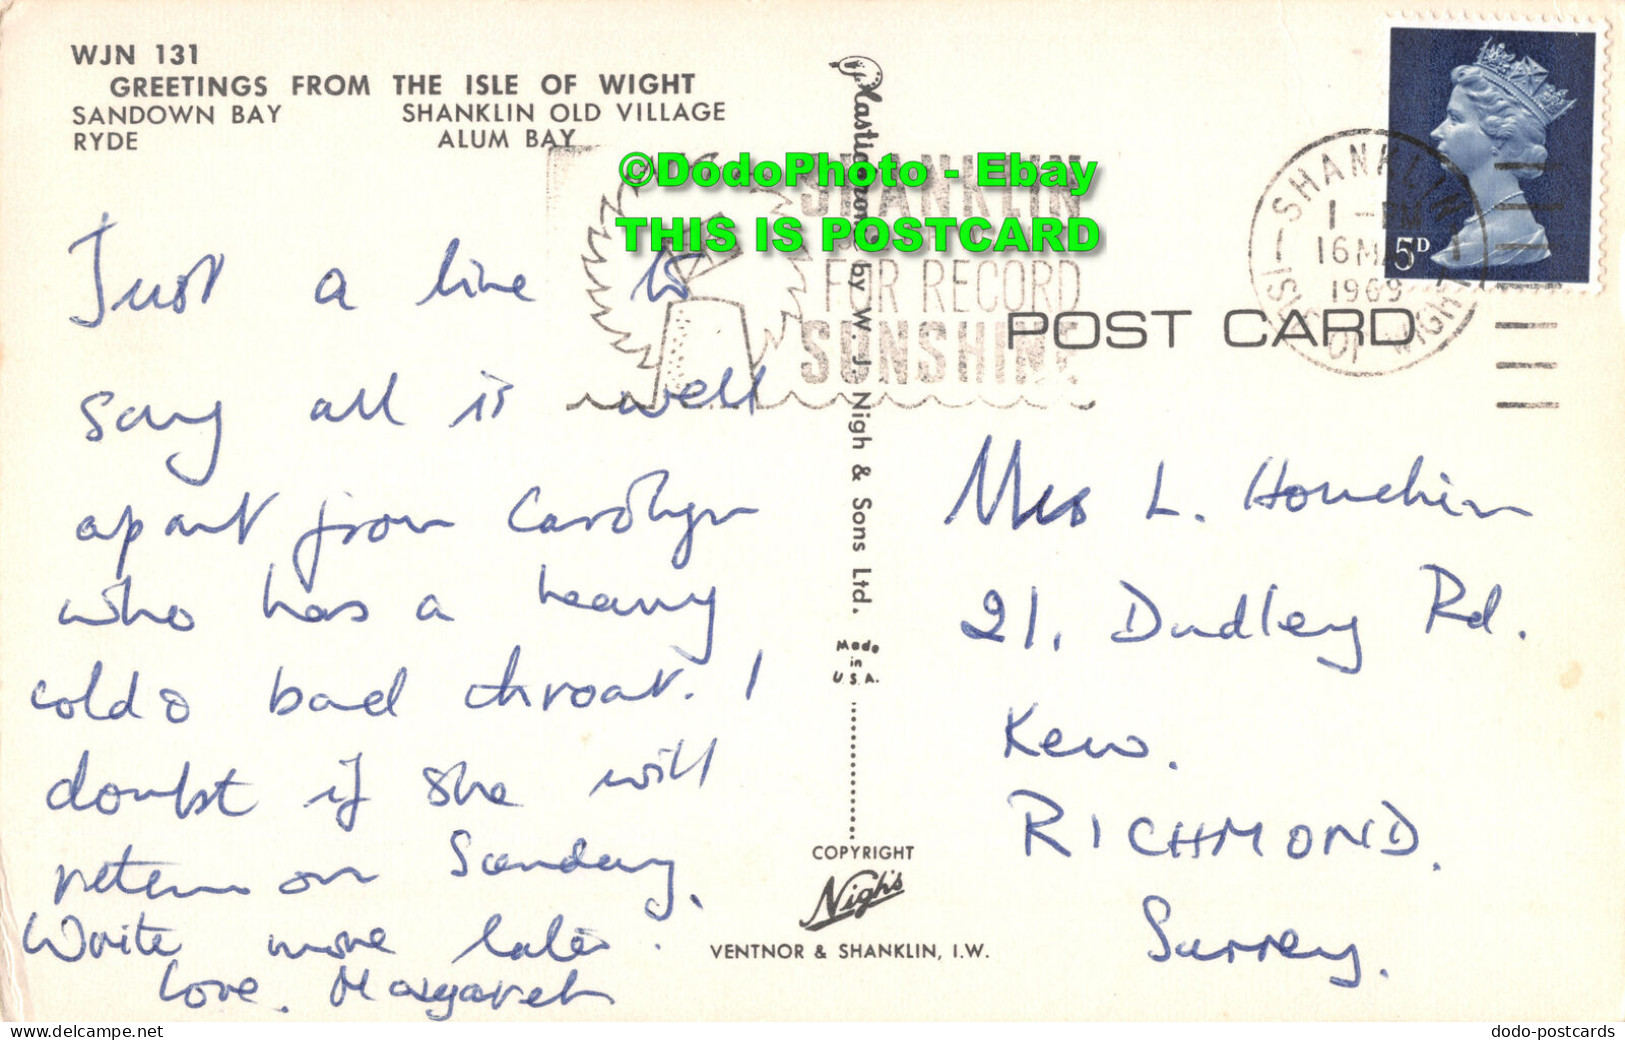 WJN 131
GREETINGS FROM THE ISLE OF WIGHT
SANDOWN BAY SHANKLIN OLD VILLAGE
RYDE ALUM BAY
©DodoPhoto - Ebay
THIS IS POSTCARD
SHANKLIN
FOR RECORD
SUNSHINE
SHANKLIN
1 - PM
16 MA
1969
ISLE OF WIGHT
5D
POST CARD
Just a line to
say all is well
apart from Carolyn
who has a heavy
cold & bad throat. I
doubt if she will
return on Sunday.
Write more later.
Love. Margaret
Plastichrome by W. J. Nigh & Sons Ltd.
Made
in
U.S.A.
COPYRIGHT
Nigh's
VENTNOR & SHANKLIN, I.W.
Mrs L. Houchin
21, Dudley Rd.
Kew.
RICHMOND.
Surrey.
dodo-postcards
www.delcampe.net